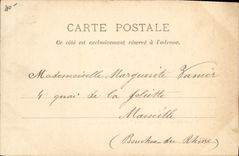 80-
CARTE POSTALE
Ce côté est exclusivement réservé à l'adresse.
Mademoiselle Marguerite Vanier
4 quai de la Joliette
Marseille
(Bouches-du-Rhône)